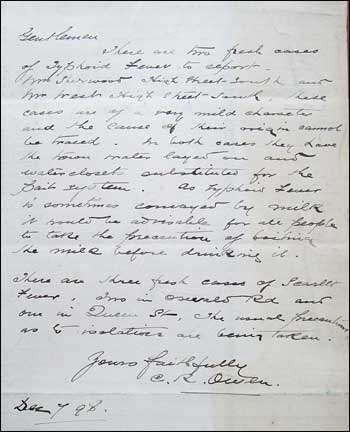 Gentlemen
There are two fresh cases
of Typhoid Fever to report.
Mr Sherwood High Street South and
Mr West High Street South, these
cases are of a very mild character
and the cause of their origin cannot
be traced. In both cases they have
the town water layed on and
watercloset substituted for the
Pail System. As Typhoid Fever
is sometimes conveyed by milk
it would be advisable for all people
to take the precaution of boiling
the milk before drinking it.
There are three fresh cases of Scarlet
Fever, two in Oswald Rd and
one in Queen St, the usual precautions
as to isolation are being taken.
Yours faithfully
C. R. Owen.
Dec 7 98.